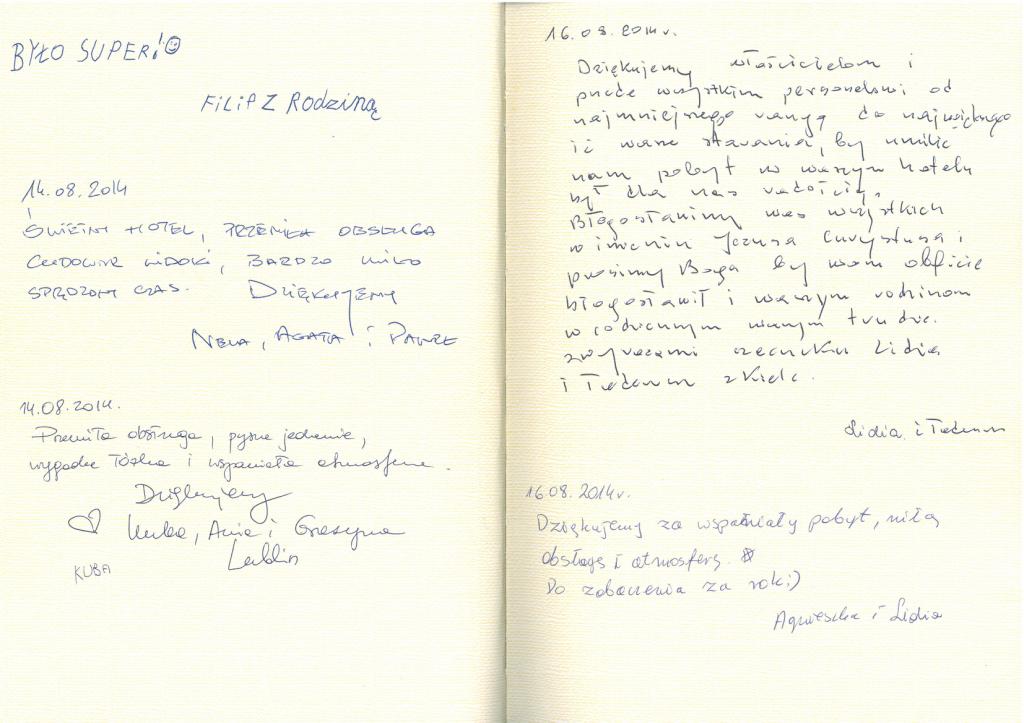 BYŁO SUPER!
FILIP Z RODZINĄ
14.08.2014
ŚWIETNY HOTEL, PRZEMIŁA OBSŁUGA
CUDOWNE WIDOKI, BARDZO MIŁO
SPĘDZONY CZAS. DZIĘKUJEMY
NELA, AGATA i PAWEŁ
14.08.2014.
Przemiła obsługa, pyszne jedzenie,
wygodne łóżka i wspaniała atmosfera.
Dziękujemy
Ania i Grażyna
Lublin
KUBA
16.08.2014r.
Dziękujemy właścicielom i
przede wszystkim personelowi od
najmniejszego rangą do największego
iż wasze starania, by umilić
nam pobyt w waszym hotelu
był dla nas radością.
Błogosławimy was wszystkich
w imieniu Jezusa Chrystusa i
prosimy Boga by wam obficie
błogosławił i waszym rodzinom
w codziennym waszym trudzie.
z wyrazami szacunku Lidia
i Tadeusz z Kielc.
Lidia i Tadeusz
16.08.2014r.
Dziękujemy za wspaniały pobyt, miłą
obsługę i atmosferę.
Do zobaczenia za rok;)
Agnieszka i Lidia